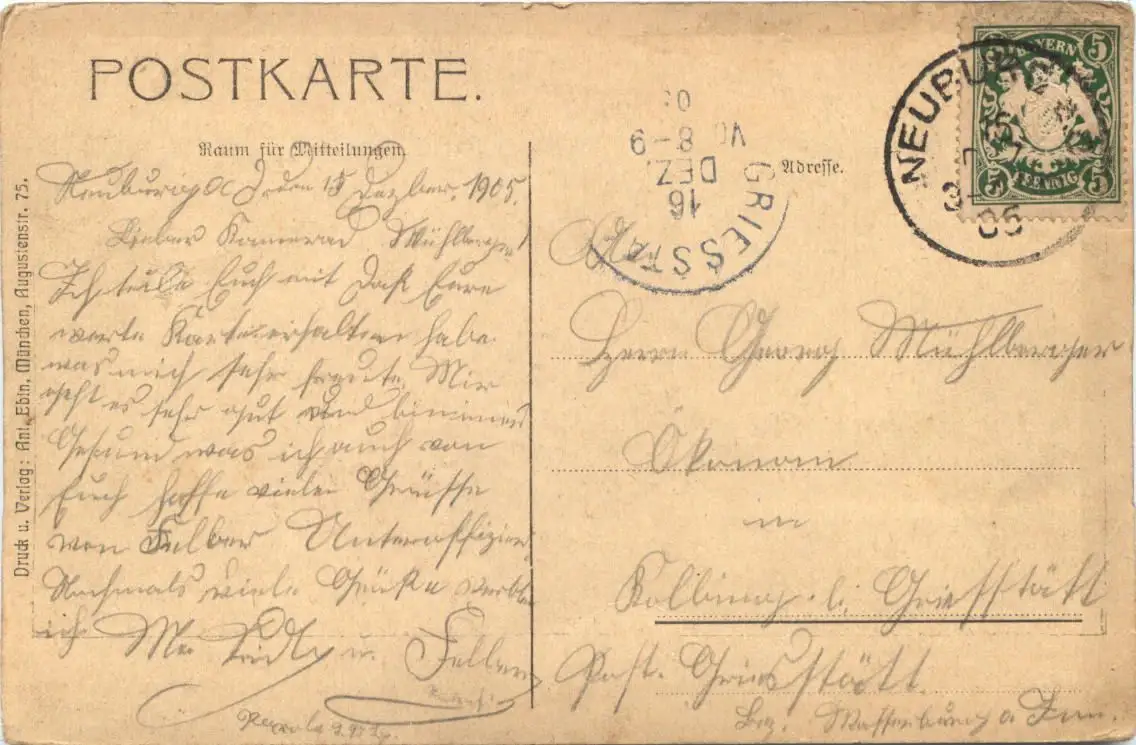 POSTKARTE.
Raum für Mitteilungen.
Neuburg a D. den 15 Dezber. 1905.
Lieber Kamerad Mühlberger
Ich teile Euch mit daß Eure
werte Karte erhalten habe
was mich sehr freute. Mir
geht es sehr gut und bin immer
Gesund was ich auch von
Euch hoffe viele Grüsse
von Felber Unteroffizier
Nochmals viele Grüße
ich
u. Felber
Druck u. Verlag: Ant. Ebin, München, Augustenstr. 75.
Adresse.
An
Herrn Georg Mühlberger
Ökonom
in
Kolbing b. Griesstätt
Post. Griesstätt
Bez. Wasserburg a Inn.
GRIESSTÄ
16
DEZ.
8-9
VO
05
NEUBU
3-
05
BAYERN
5
5 PFENNIG 5